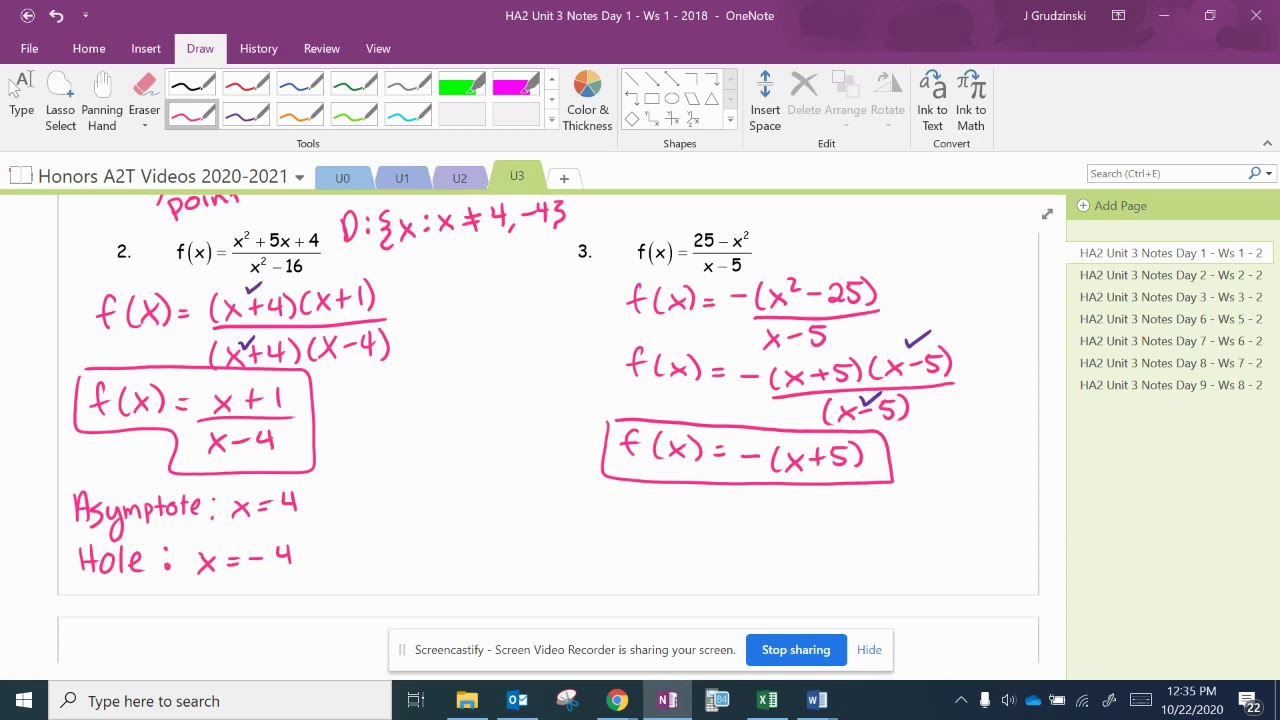 HA2 Unit 3 Notes Day 1 - Ws 1 - 2018 - OneNote
J Grudzinski
File Home Insert Draw History Review View
Type
Lasso Select
Panning Hand
Eraser
Tools
Color & Thickness
Shapes
Insert Space
Delete
Arrange
Rotate
Edit
Ink to Text
Ink to Math
Convert
Honors A2T Videos 2020-2021
U0 U1 U2 U3
Search (Ctrl+E)
Add Page
HA2 Unit 3 Notes Day 1 - Ws 1 - 2
HA2 Unit 3 Notes Day 2 - Ws 2 - 2
HA2 Unit 3 Notes Day 3 - Ws 3 - 2
HA2 Unit 3 Notes Day 6 - Ws 5 - 2
HA2 Unit 3 Notes Day 7 - Ws 6 - 2
HA2 Unit 3 Notes Day 8 - Ws 7 - 2
HA2 Unit 3 Notes Day 9 - Ws 8 - 2
point
D: {x : x ≠ 4, -4}
2. f(x) = (x² + 5x + 4)/(x² − 16)
f(x) = (x+4)(x+1)/(x+4)(x-4)
f(x) = (x+1)/(x-4)
Asymptote: x = 4
Hole: x = -4
3. f(x) = (25 − x²)/(x − 5)
f(x) = -(x² - 25)/(x-5)
f(x) = -(x+5)(x-5)/(x-5)
f(x) = -(x+5)
Screencastify - Screen Video Recorder is sharing your screen.
Stop sharing
Hide
Type here to search
84
12:35 PM
10/22/2020
22